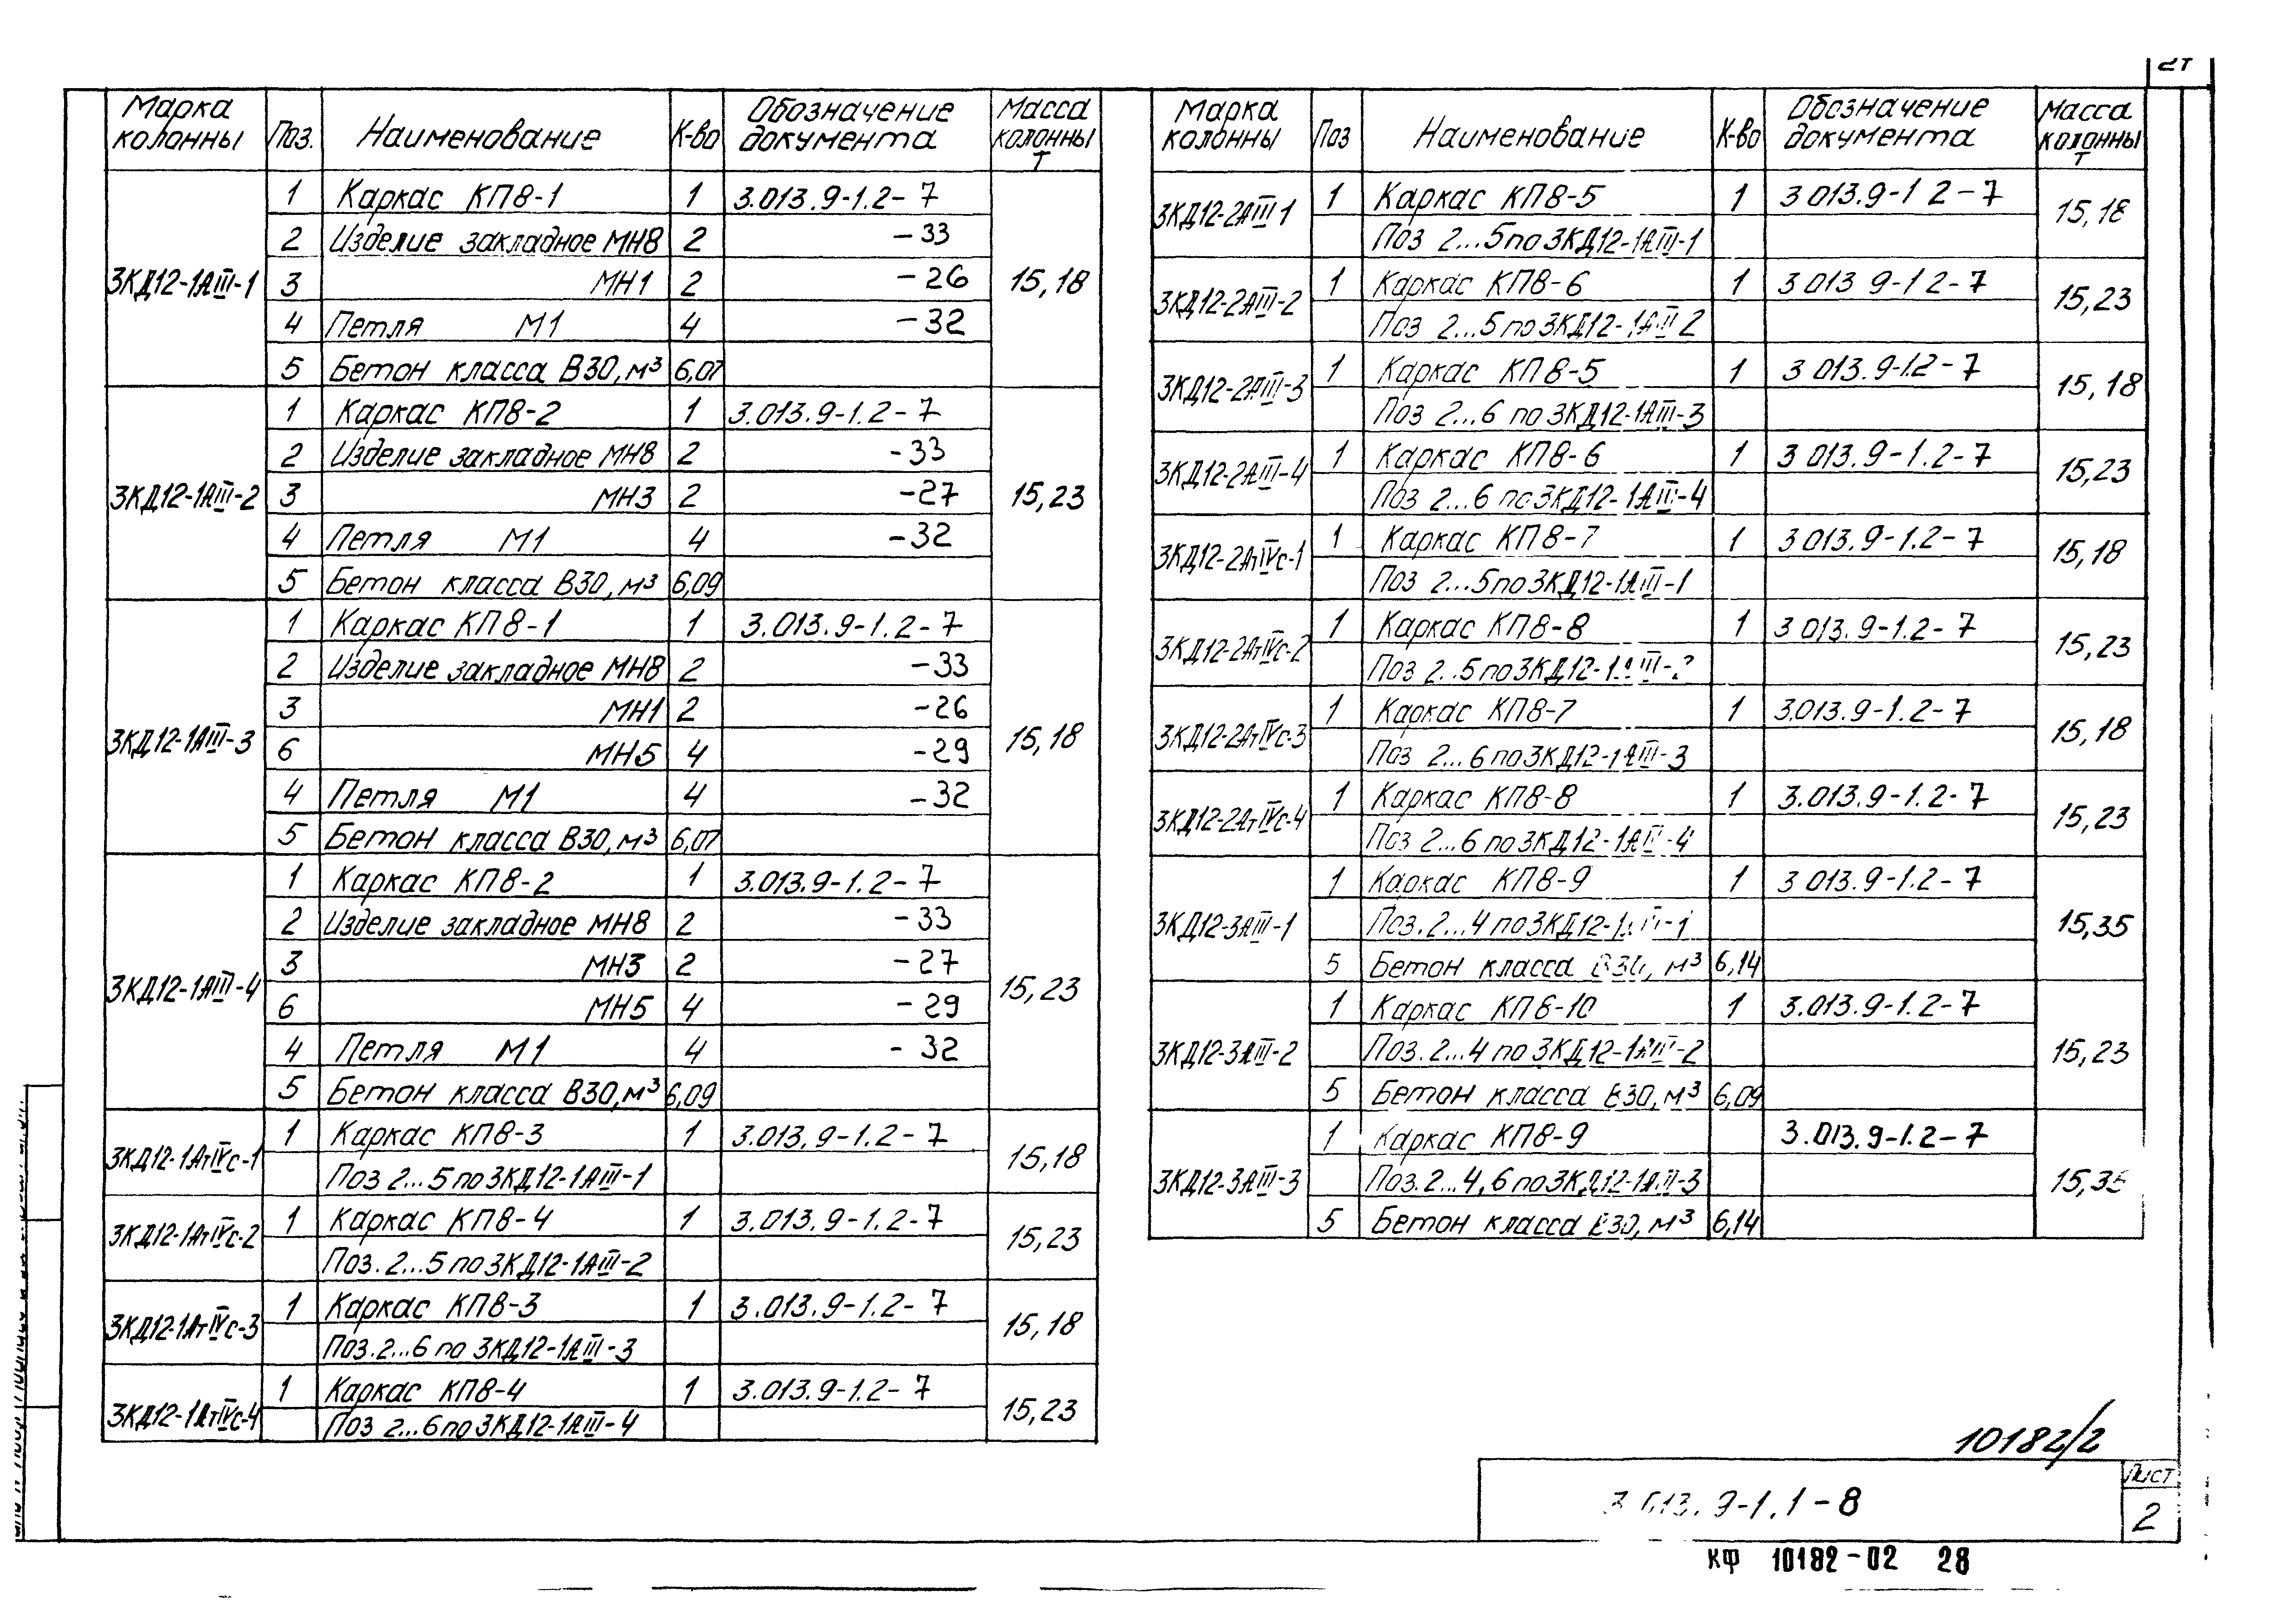 27
Марка колонны Поз. Наименование К-во Обозначение документа Масса колонны т
3КД12-1АIII-1 15,18
1 Каркас КП8-1 1 3.013.9-1.2-7
2 Изделие закладное МН8 2 -33
3 МН1 2 -26
4 Петля М1 4 -32
5 Бетон класса В30, м³ 6,07
3КД12-1АIII-2 15,23
1 Каркас КП8-2 1 3.013.9-1.2-7
2 Изделие закладное МН8 2 -33
3 МН3 2 -27
4 Петля М1 4 -32
5 Бетон класса В30, м³ 6,09
3КД12-1АIII-3 15,18
1 Каркас КП8-1 1 3.013.9-1.2-7
2 Изделие закладное МН8 2 -33
3 МН1 2 -26
6 МН5 4 -29
4 Петля М1 4 -32
5 Бетон класса В30, м³ 6,07
3КД12-1АIII-4 15,23
1 Каркас КП8-2 1 3.013.9-1.2-7
2 Изделие закладное МН8 2 -33
3 МН3 2 -27
6 МН5 4 -29
4 Петля М1 4 -32
5 Бетон класса В30, м³ 6,09
3КД12-1АтIVс-1 15,18
1 Каркас КП8-3 1 3.013.9-1.2-7
Поз 2...5 по 3КД12-1АIII-1
3КД12-1АтIVс-2 15,23
1 Каркас КП8-4 1 3.013.9-1.2-7
Поз. 2...5 по 3КД12-1АIII-2
3КД12-1АтIVс-3 15,18
1 Каркас КП8-3 1 3.013.9-1.2-7
Поз. 2...6 по 3КД12-1АIII-3
3КД12-1АтIVс-4 15,23
1 Каркас КП8-4 1 3.013.9-1.2-7
Поз 2...6 по 3КД12-1АIII-4
Марка колонны Поз Наименование К-во Обозначение документа Масса колонны т
3КД12-2АIII-1 15,18
1 Каркас КП8-5 1 3 013.9-1 2-7
Поз 2...5 по 3КД12-1АIII-1
3КД12-2АIII-2 15,23
1 Каркас КП8-6 1 3 013 9-1 2-7
Поз 2...5 по 3КД12-1АIII 2
3КД12-2АIII-3 15,18
1 Каркас КП8-5 1 3 013.9-1.2-7
Поз 2...6 по 3КД12-1АIII-3
3КД12-2АIII-4 15,23
1 Каркас КП8-6 1 3 013.9-1.2-7
Поз 2...6 по 3КД12-1АIII-4
3КД12-2АтIVс-1 15,18
1 Каркас КП8-7 1 3 013.9-1.2-7
Поз 2...5 по 3КД12-1АIII-1
3КД12-2АтIVс-2 15,23
1 Каркас КП8-8 1 3 013.9-1.2-7
Поз 2...5 по 3КД12-1АIII-2
3КД12-2АтIVс-3 15,18
1 Каркас КП8-7 1 3.013.9-1.2-7
Поз 2...6 по 3КД12-1АIII-3
3КД12-2АтIVс-4 15,23
1 Каркас КП8-8 1 3.013.9-1.2-7
Поз 2...6 по 3КД12-1АIII-4
3КД12-3АIII-1 15,35
1 Каркас КП8-9 1 3 013.9-1.2-7
Поз. 2...4 по 3КД12-1АIII-1
5 Бетон класса В30, м³ 6,14
3КД12-3АIII-2 15,23
1 Каркас КП8-10 1 3.013.9-1.2-7
Поз. 2...4 по 3КД12-1АIII-2
5 Бетон класса В30, м³ 6,09
3КД12-3АIII-3 15,35
1 Каркас КП8-9 3.013.9-1.2-7
Поз. 2...4,6 по 3КД12-1АIII-3
5 Бетон класса В30, м³ 6,14
10182/2
3.013.9-1.1-8
Лист
2
КФ 10182-02 28